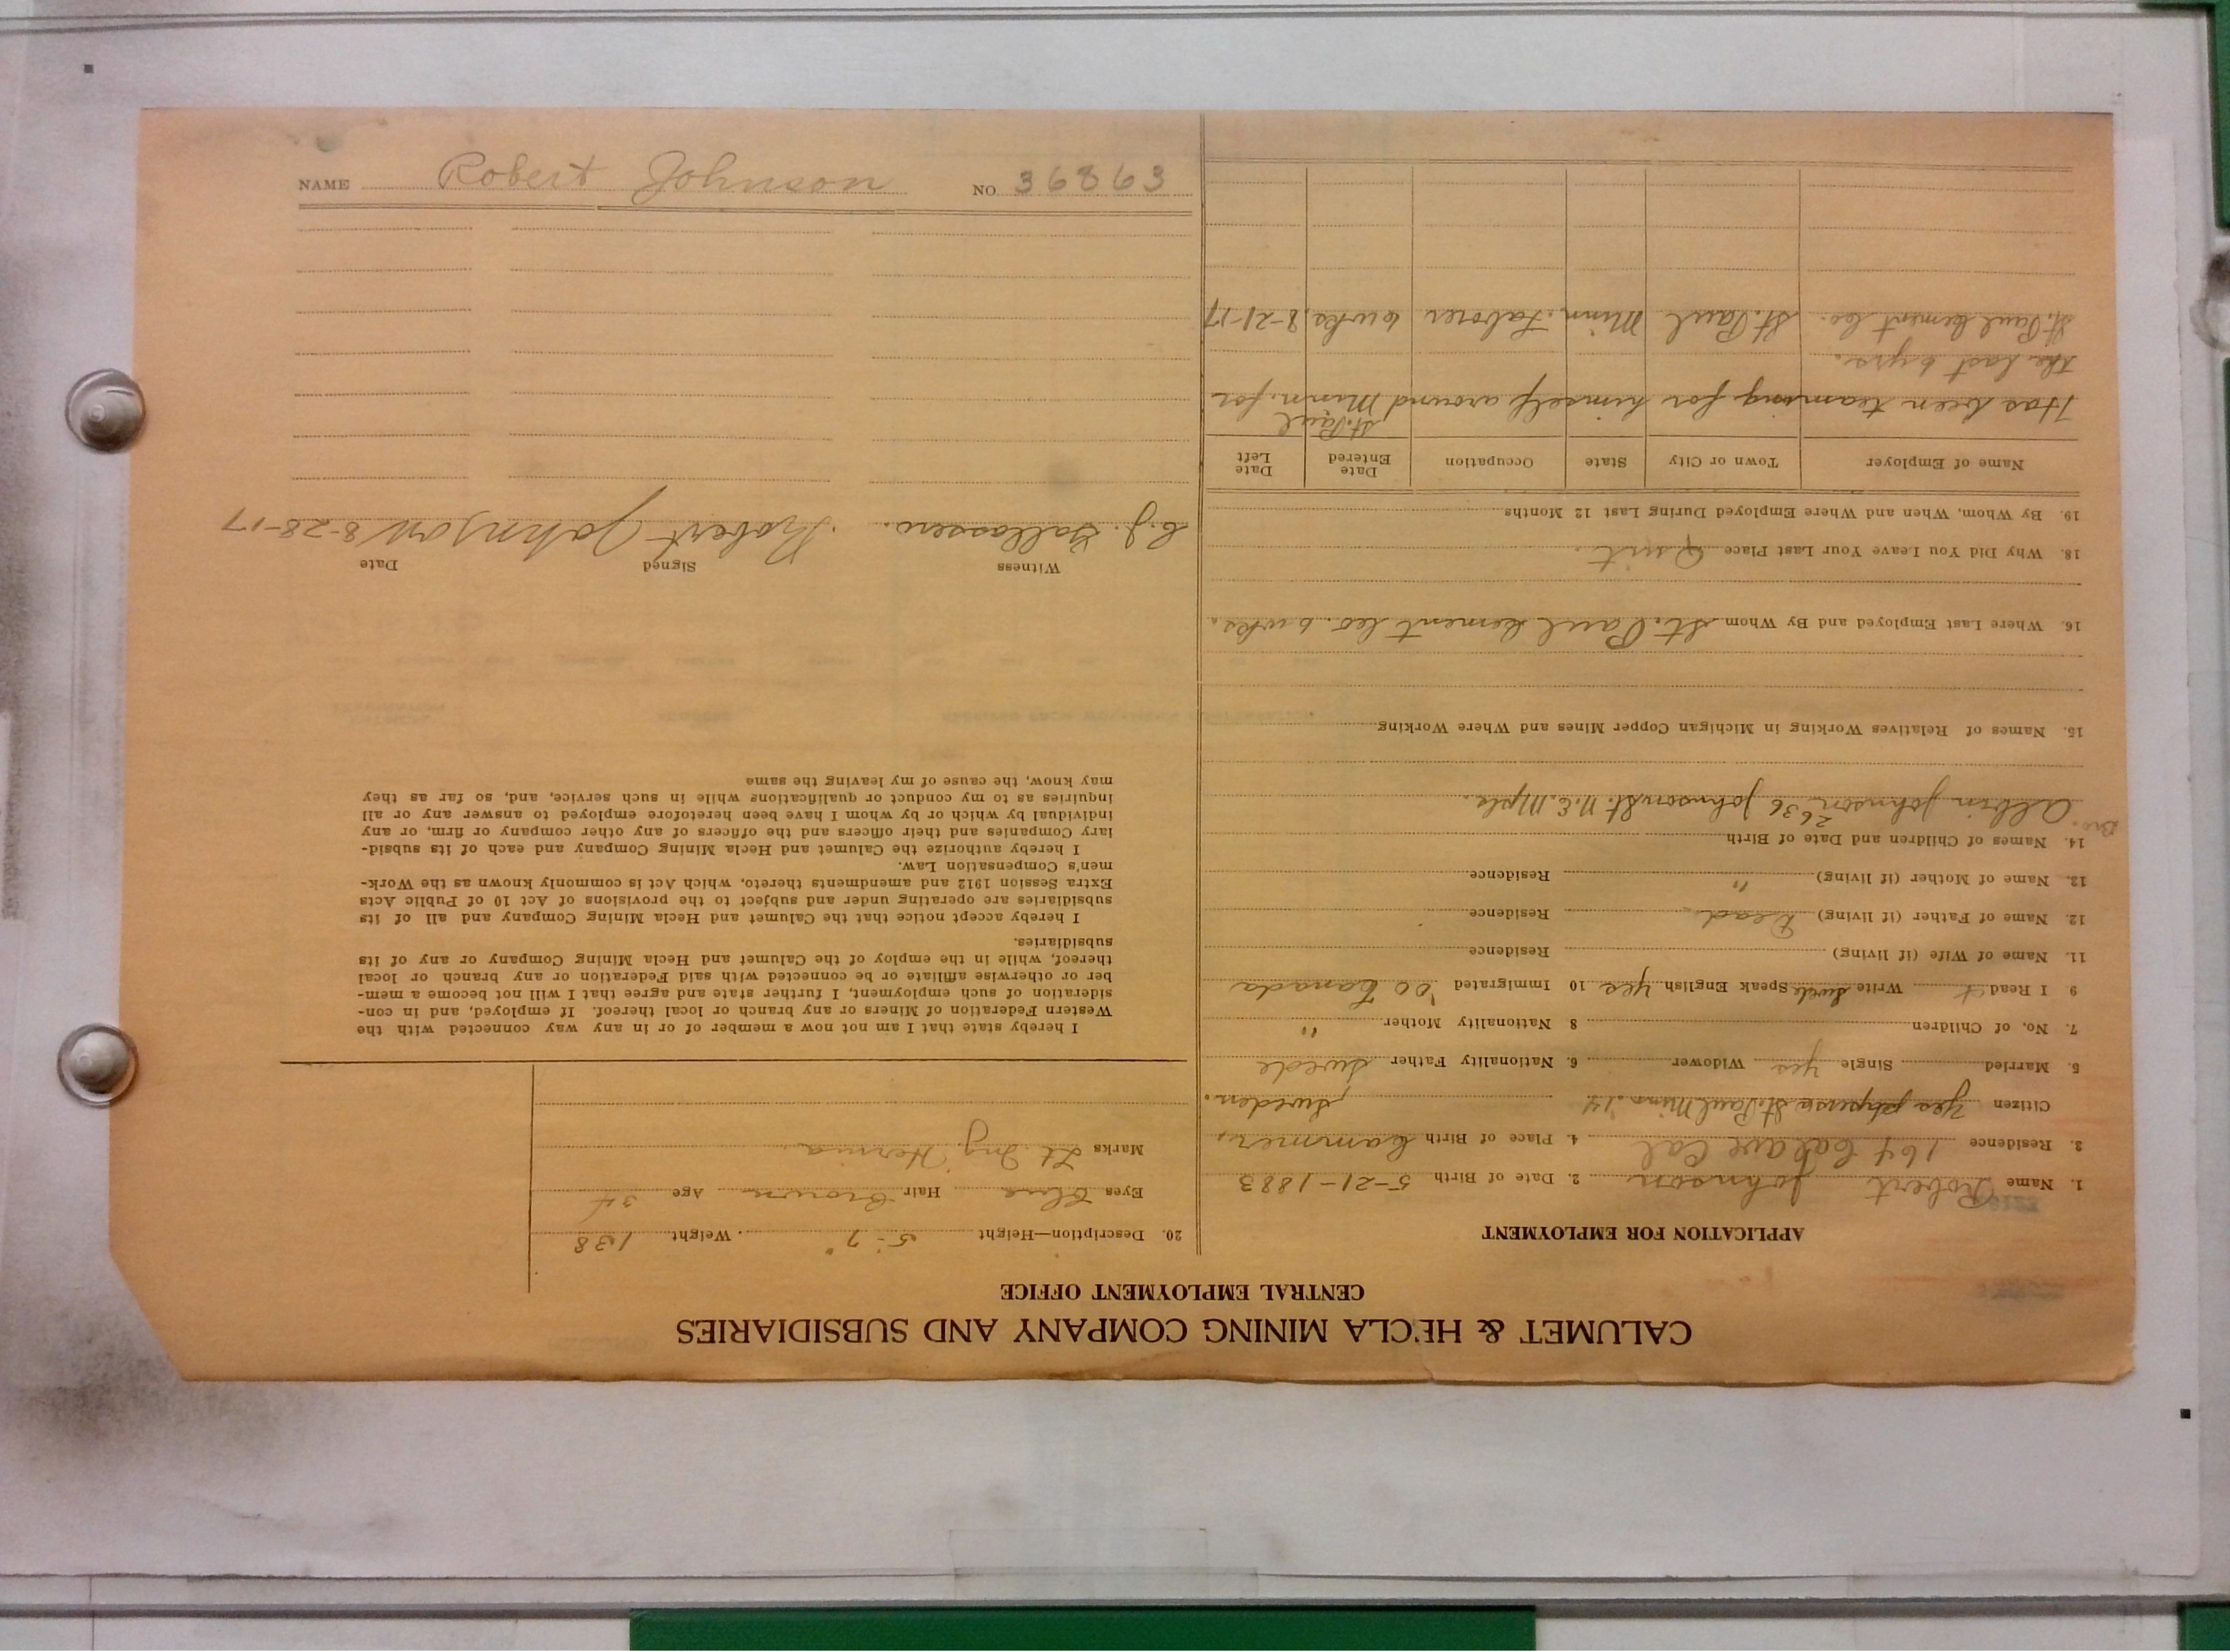 CALUMET & HECLA MINING COMPANY AND SUBSIDIARIES
CENTRAL EMPLOYMENT OFFICE
APPLICATION FOR EMPLOYMENT
1. Name Robert Johnson 2. Date of Birth 5-21-1883
3. Residence 164 Cal ave Cal 4. Place of Birth Cammer,
Citizen Yes St. Paul Minn. '14 Sweden.
5. Married Single yes Widower 6. Nationality Father Swede
7. No. of Children 8 Nationality Mother "
9 I Read & Write Swede Speak English yes 10 Immigrated '00 Canada
11. Name of Wife (if living) Residence
12. Name of Father (if living) Dead Residence
13. Name of Mother (if living) " Residence
14. Names of Children and Date of Birth
Bro. Albin Johnson 2636 Johnson St. N.E. Mpls.
15. Names of Relatives Working in Michigan Copper Mines and Where Working
16. Where Last Employed and By Whom St. Paul Cement Co. 6 wks.
18. Why Did You Leave Your Last Place Quit.
19. By Whom, When and Where Employed During Last 12 Months
Name of Employer Town or City State Occupation Date Entered Date Left
St. Paul
Has been teaming for himself around Minn. for
the last 6 yrs.
St. Paul Cement Co. St. Paul Minn. Laborer 6 wks. 8-21-17
20. Description—Height 5-7" Weight 138
Eyes Blue Hair Brown Age 34
Marks Lt. Ing Hernia
I hereby state that I am not now a member of or in any way connected with the
Western Federation of Miners or any branch or local thereof. If employed, and in con-
sideration of such employment, I further state and agree that I will not become a mem-
ber or otherwise affiliate or be connected with said Federation or any branch or local
thereof, while in the employ of the Calumet and Hecla Mining Company or any of its
subsidiaries.
I hereby accept notice that the Calumet and Hecla Mining Company and all of its
subsidiaries are operating under and subject to the provisions of Act 10 of Public Acts
Extra Session 1912 and amendments thereto, which Act is commonly known as the Work-
men's Compensation Law.
I hereby authorize the Calumet and Hecla Mining Company and each of its subsid-
iary Companies and their officers and the officers of any other company or firm, or any
individual by which or by whom I have been heretofore employed to answer any or all
inquiries as to my conduct or qualifications while in such service, and, so far as they
may know, the cause of my leaving the same
Witness Signed Date
C. J. Robert Johnson 8-28-17
NAME Robert Johnson NO. 36863